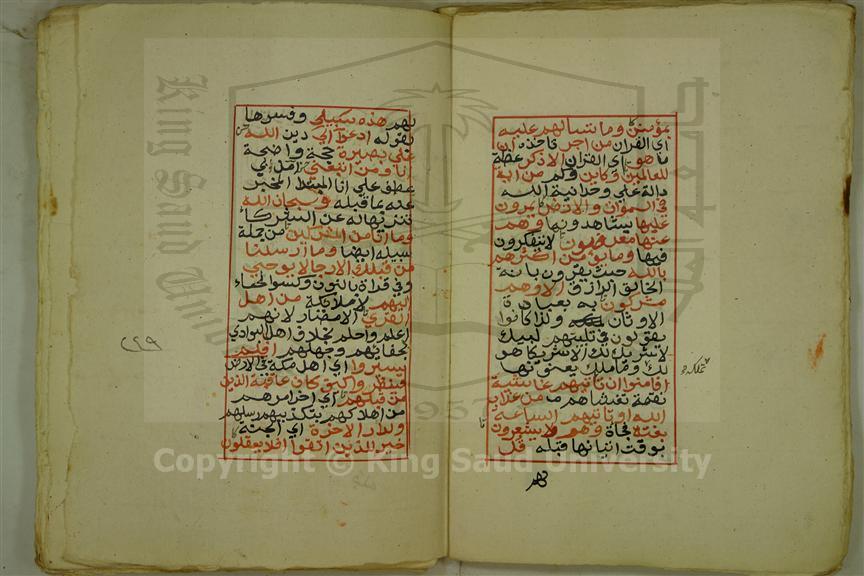 بمؤمنين وما تسالهم عليه
اي القران من اجر تاخذه ان
ما هو اي القران الا ذكر عظة
للعالمين وكاين وكم من اية
دالة علي وحدانية الله
في السموات والارض يمرون
عليها يشاهدونها وهم
عنها معرضون لا يتفكرون
فيها وما يؤمن اكثرهم
بالله حيث يقرون بانه
الخالق الرازق الا وهم
مشركون به بعبادة
الاوثان ولذا كانوا
يقولون في تلبيتهم لبيك
لا شريك لك الا شريكا هو
لك وما ملك يعنونها
افامنوا ان تاتيهم غاشية
نقمة تغشاهم من عذاب
الله او تاتيهم الساعة
بغتة فجاة وهم لا يشعرون
بوقت اتيانها قبله قل
تملكه
لهم هذه سبيلي وفسرها
بقوله ادعوا الي دين الله
علي بصيرة حجة واضحة
انا ومن اتبعني امن بي
عطف علي انا المبتدا المخبر
عنه بما قبله وسبحان الله
تنزيها له عن الشركا
وما انا من المشركين من جملة
سبيله ايضا وما ارسلنا
من قبلك الا رجالا يوحي
وفي قراة بالنون وكسر الحاء
اليهم لا ملايكة من اهل
القري الامصار لانهم
اعلم واحلم بخلاف اهل البوادي
لجفائهم وجهلهم افلم
يسيروا اي اهل مكة في الارض
فينظروا كيف كان عاقبة الذين
من قبلهم اي اخر امرهم
من اهلاكهم بتكذيبهم رسلهم
ولدار الاخرة اي الجنة
خير للذين اتقوا افلا يعقلون
٢٢٩
King Saud University
1957
Copyright © King Saud University